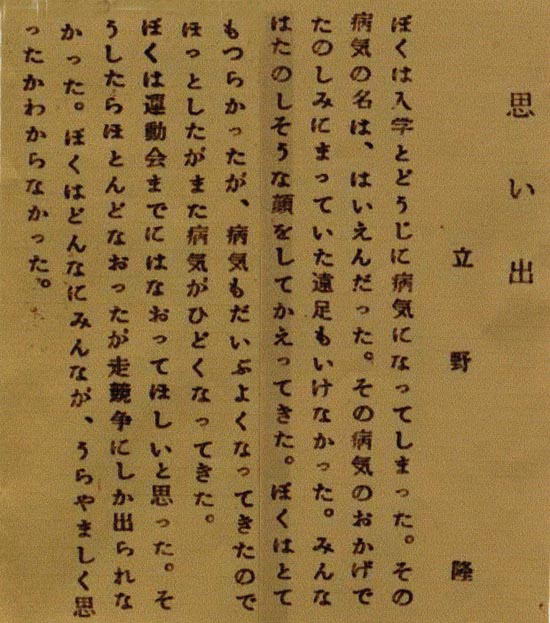 思い出
立野隆
ぼくは入学とどうじに病気になってしまった。その
病気の名は、はいえんだった。その病気のおかげで
たのしみにまっていた遠足もいけなかった。みんな
はたのしそうな顔をしてかえってきた。ぼくはとて
もつらかったが、病気もだいぶよくなってきたので
ほっとしたがまた病気がひどくなってきた。
ぼくは運動会までにはなおってほしいと思った。そ
うしたらほとんどなおったが走競争にしか出られな
かった。ぼくはどんなにみんなが、うらやましく思
ったかわからなかった。